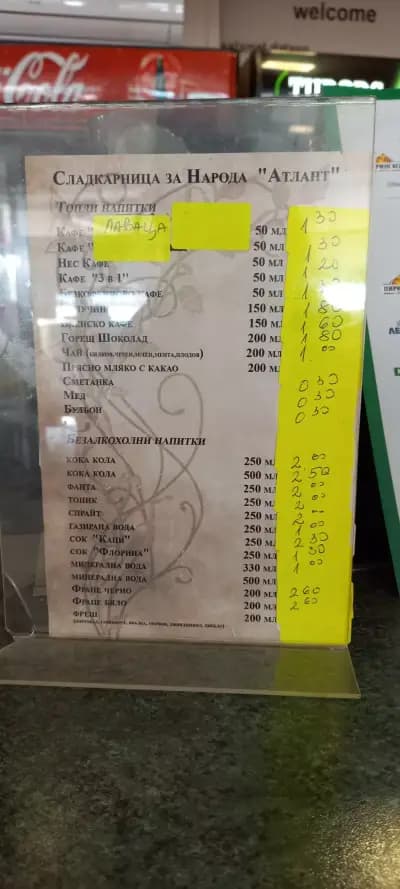 welcome
Coca-Cola
TUBORG
Сладкарница за Народа "Атлант"
Топли напитки
Кафе " ЛАВАЦЦА 50 мл 1 30
Кафе " 50 мл 1 30
Нес Кафе 50 мл 1 20
Кафе "3 в 1" 50 мл
кафе 50 мл 1 80
150 мл 1 60
кафе 150 мл 1 80
Горещ Шоколад 200 мл 1 00
Чай 200 мл
Прясно мляко с какао 200 мл
Сметанка 0 30
Мед 0 30
Бульон 0 30
Безалкохолни напитки
кока кола 250 мл 2 00
кока кола 500 мл 2 50
фанта 250 мл 2 00
тоник 250 мл 2 00
спрайт 250 мл 2 00
газирана вода 250 мл 1 00
сок "Капи" 250 мл 2 30
сок "Флорина" 250 мл 1 30
минерална вода 330 мл 1 00
минерална вода 500 мл
Фрапе черно 200 мл 2 60
Фрапе бяло 200 мл 2 60
фреш 200 мл